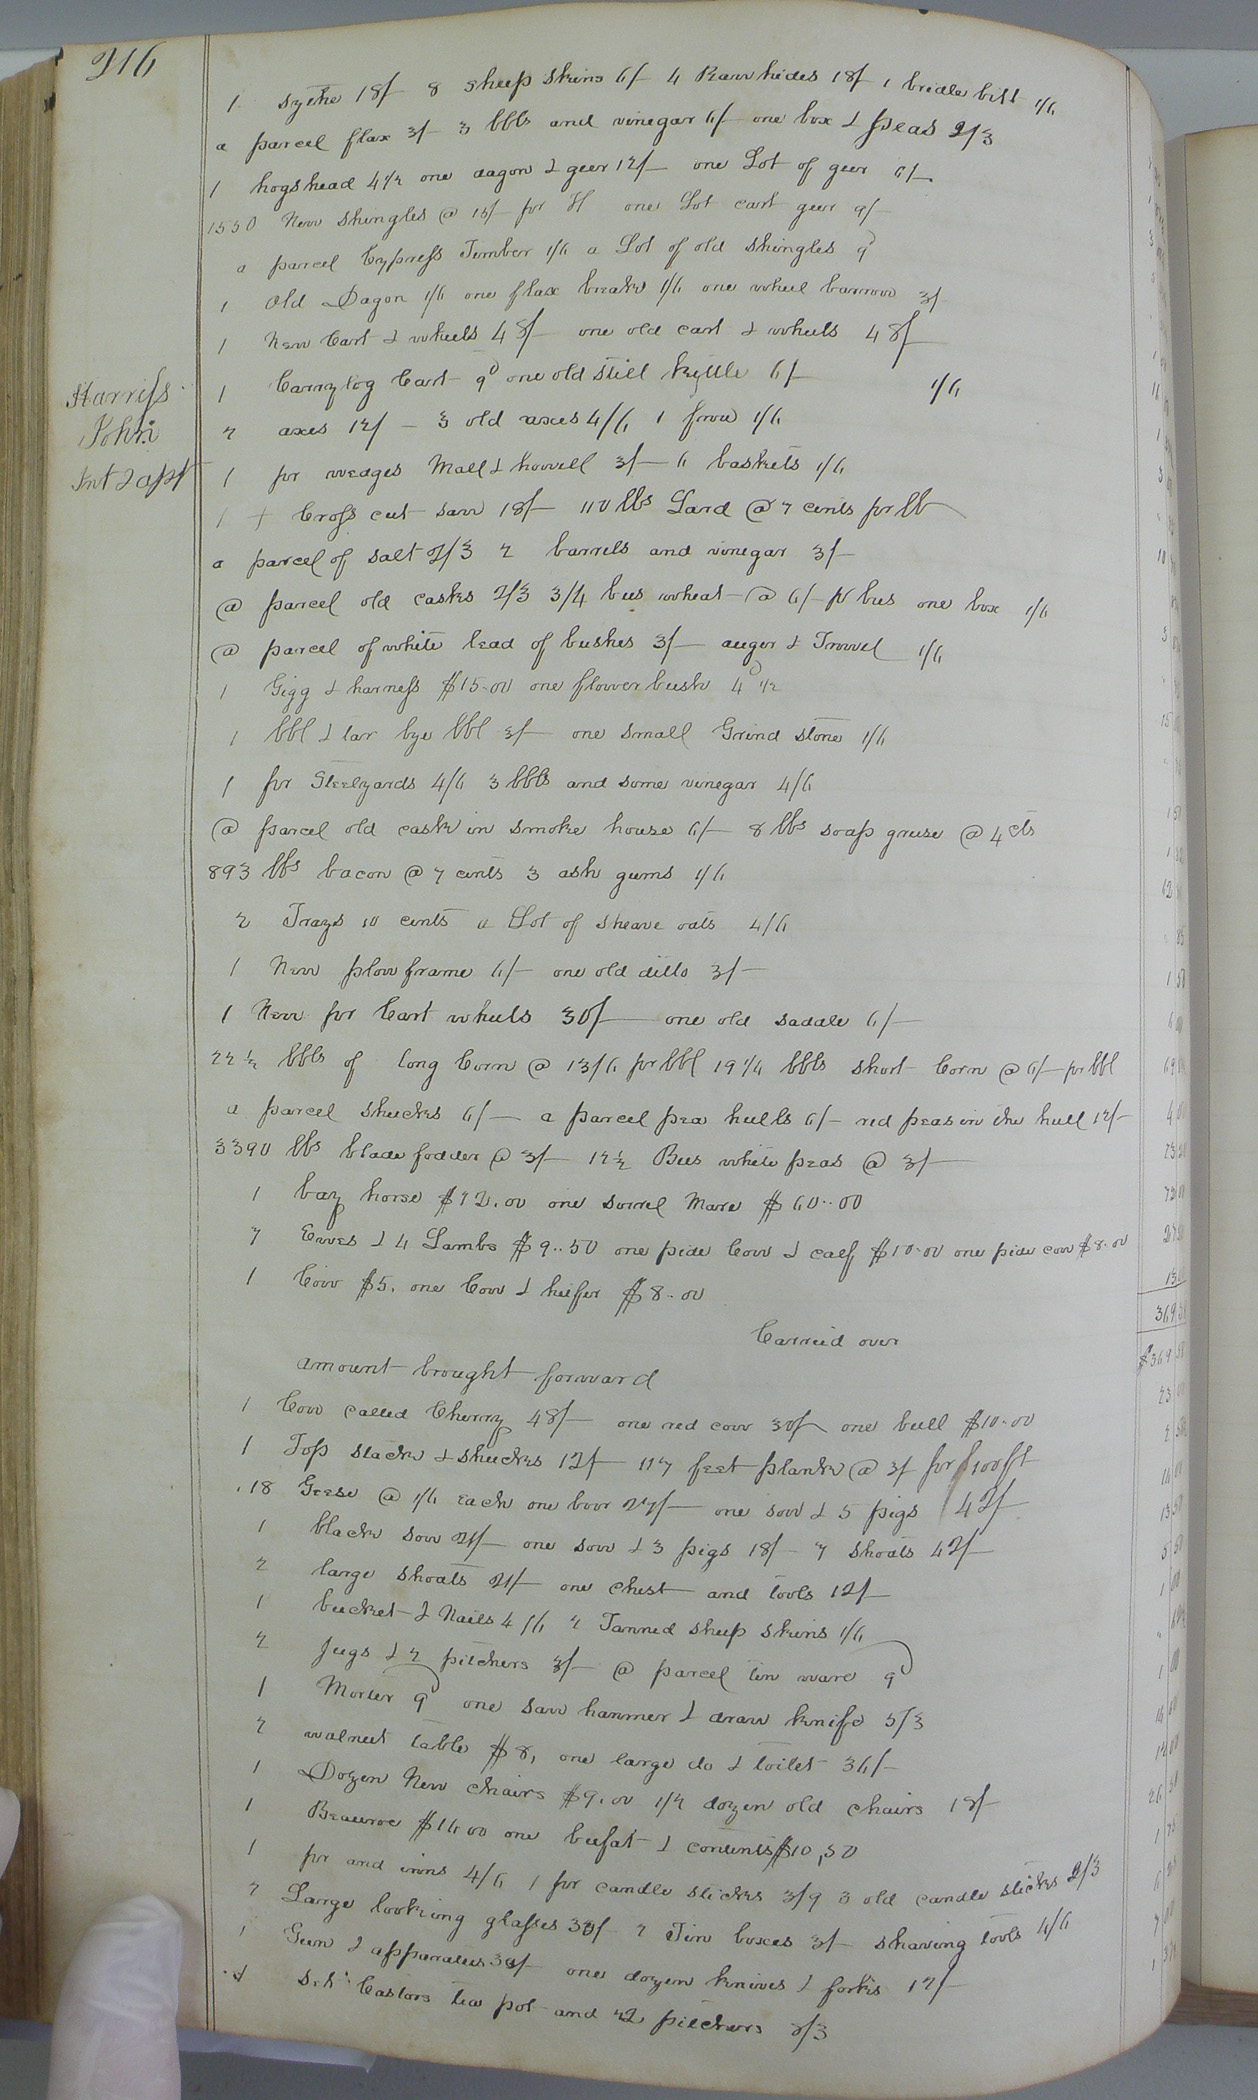 216
1 sythe 18/- 8 sheep skins 6/- 4 Raw hides 18/- 1 bridle bitt 1/6
a parcel flax 3/- 3 bbls and vinegar 6/- one box & peas 2/3
1 hogshead 4 1/2 one dagon & geer 12/- one Lot of geer 6/-
1550 New shingles @ 15/- pr M one Lot cart geer 9/-
a parcel Cypress Timber 1/6 a Lot of old shingles 9d
1 Old Dagon 1/6 one flax break 1/6 one wheel barrow 3/
1 New Cart & wheels 48/- one old cart & wheels 48/-
1 Carrylog Cart 9d one old still kettle 6/- 1/6
Harriss
John
Int 2 apt
2 axes 12/- 3 old axes 4/6 1 frow 1/6
1 pr wedges Mall & howell 3/- 6 baskets 1/6
1 + Cross cut saw 18/- 110 lbs Lard @ 7 cents pr lb
a parcel of salt 2/3 2 barrels and vinegar 3/-
@ parcel old casks 2/3 3/4 bus wheat @ 6/- pr bus one box 1/6
@ parcel of white lead of bushes 3/- auger & Trowel 1/6
1 Gigg & harness $15.00 one flower bush 4d 1/2
1 bbl & tar bye bbl 3/- one small Grind stone 1/6
1 pr Steelyards 4/6 3 bbls and some vinegar 4/6
@ parcel old cask in smoke house 6/- 8 lbs soap grease @ 4 cts
893 lbs bacon @ 7 cents 3 ash gums 1/6
2 Trays 10 cents a Lot of sheave oats 4/6
1 New plow frame 6/- one old ditto 3/-
1 New pr Cart wheels 30/- one old saddle 6/-
22 1/2 bbls of long Corn @ 13/6 pr bbl 19 1/4 bbls short Corn @ 6/- pr bbl
a parcel shucks 6/- a parcel pea hulls 6/- red peas in the hull 12/-
3390 lbs blade fodder @ 3/- 12 1/2 Bus white peas @ 3/-
1 bay horse $72.00 one sorrel Mare $60..00
7 Ewes & 4 Lambs $9..50 one pide Cow & calf $10.00 one pide cow $8.00
1 Cow $5. one Cow & heifer $8.00
Carried over
amount brought forward
1 Cow called Cherry 48/- one red cow 30/- one bull $10.00
1 Top stack & shucks 12/- 117 feet plank @ 3/ pr 100 ft
18 Geese @ 1/6 each one boor 27/- one sow & 5 pigs 42/-
1 black sow 21/- one sow & 3 pigs 18/- 7 shoats 42/-
2 large shoats 21/- one chest and tools 12/-
1 bucket & Nails 4/6 2 Tanned sheep skins 1/6
2 Jugs & 2 pitchers 3/- @ parcel tin ware 9d
1 Morter 9d one saw hammer & draw knife 5/3
2 walnut table $8, one large do & toilet 36/-
1 Dozen New chairs $9.00 1/2 dozen old chairs 18/-
1 Beauroe $16.00 one bufat & contents $10,50
1 pr and irons 4/6 1 pr candle sticks 3/9 3 old candle sticks 2/3
2 Large looking glasses 30/- 2 Tin boxes 3/- shaving tools 4/6
1 Gun & apparatus 30/- one dozen knives & forks 12/-
Castors tea pot and 2 pitchers 8/3